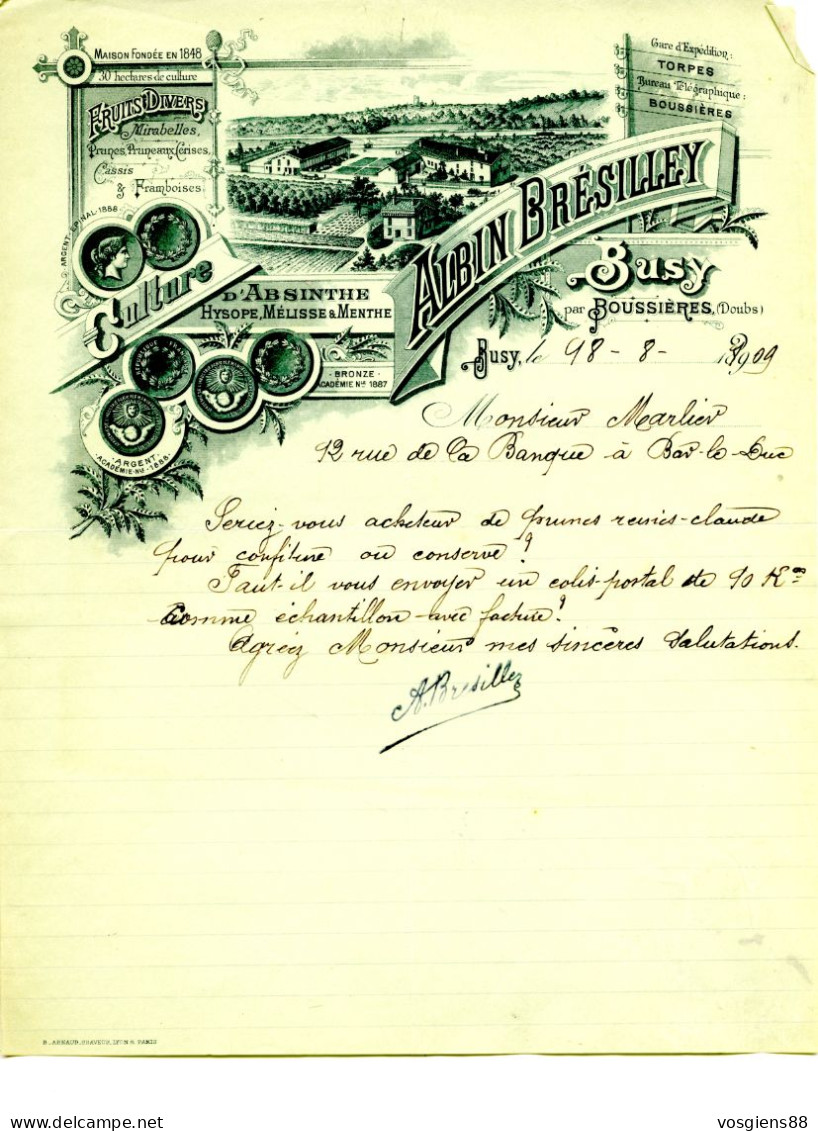 MAISON FONDÉE EN 1848
30 hectares de culture
FRUITS DIVERS
Mirabelles,
Prunes, Pruneaux, Cerises,
Cassis
& Framboises
Gare d'Expédition:
TORPES
Bureau Télégraphique:
BOUSSIÈRES
ALBIN BRÉSILLEY
Busy
par BOUSSIÈRES, (Doubs)
ARGENT EPINAL 1886
Culture
D'ABSINTHE
HYSOPE, MÉLISSE & MENTHE
BRONZE
ACADÉMIE Nle 1887
ARGENT
ACADÉMIE Nle 1888
Busy, le 18-8-1909
Monsieur Marlier
12 rue de la Banque à Bar-le-Duc
Seriez-vous acheteur de prunes reines-claude
pour confiture ou conserve?
Faut-il vous envoyer un colis-postal de 10 Kos
comme échantillon avec facture?
Agréez Monsieur mes sincères salutations.
A. Bresilley
B. ARNAUD, GRAVEUR, LYON & PARIS
vosgiens88